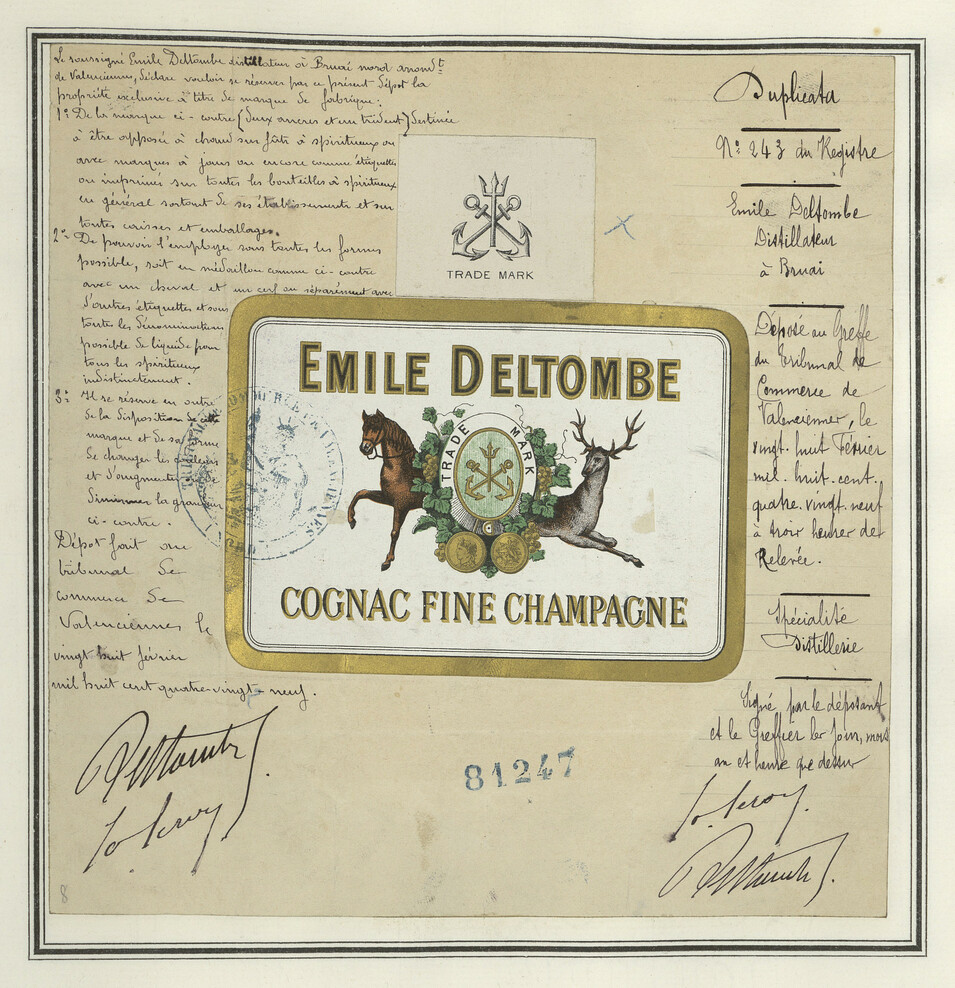 Le soussigné Emile Deltombe distillateur à Bruai nord arrondt
de Valenciennes, déclare vouloir se réserver par ce présent dépôt la
propriété exclusive à titre de marque de fabrique :
1º De la marque ci-contre (deux ancres et un trident) destinée
à être apposé à chaud sur fûts à spiritueux ou
avec marques à jours ou encore comme étiquettes
ou imprimés sur toutes les bouteilles à spiritueux
en général sortant de ses établissements et sur
toutes caisses et emballages.
2º De pouvoir l'employer sous toutes les formes
possible, soit en médaillon comme ci-contre
avec un cheval et un cerf ou séparément avec
d'autres étiquettes et sous
toutes les dénominations
possible de liquide pour
tous les spiritueux
indistinctement.
3º Il se réserve en outre
de la disposition de cette
marque et de sa forme
de changer les couleurs
et d'augmenter ou
diminuer la grandeur
ci-contre.
Dépôt fait au
tribunal de
commerce de
Valenciennes le
vingt huit février
mil huit cent quatre-vingt-neuf.
Deltombe
Jo. Leroy
TRADE MARK
EMILE DELTOMBE
TRADE MARK
COGNAC FINE CHAMPAGNE
81247
Duplicata
Nº 243 du Registre
Emile Deltombe
Distillateur
à Bruai
Déposé au Greffe
du Tribunal de
Commerce de
Valenciennes, le
vingt-huit Février
mil-huit-cent-
quatre-vingt-neuf
à trois heures de
Relevée.
Spécialité
Distillerie
Signé par le déposant
et le Greffier les jour, mois
an et heure que dessus
Jo. Leroy.
Deltombe
8